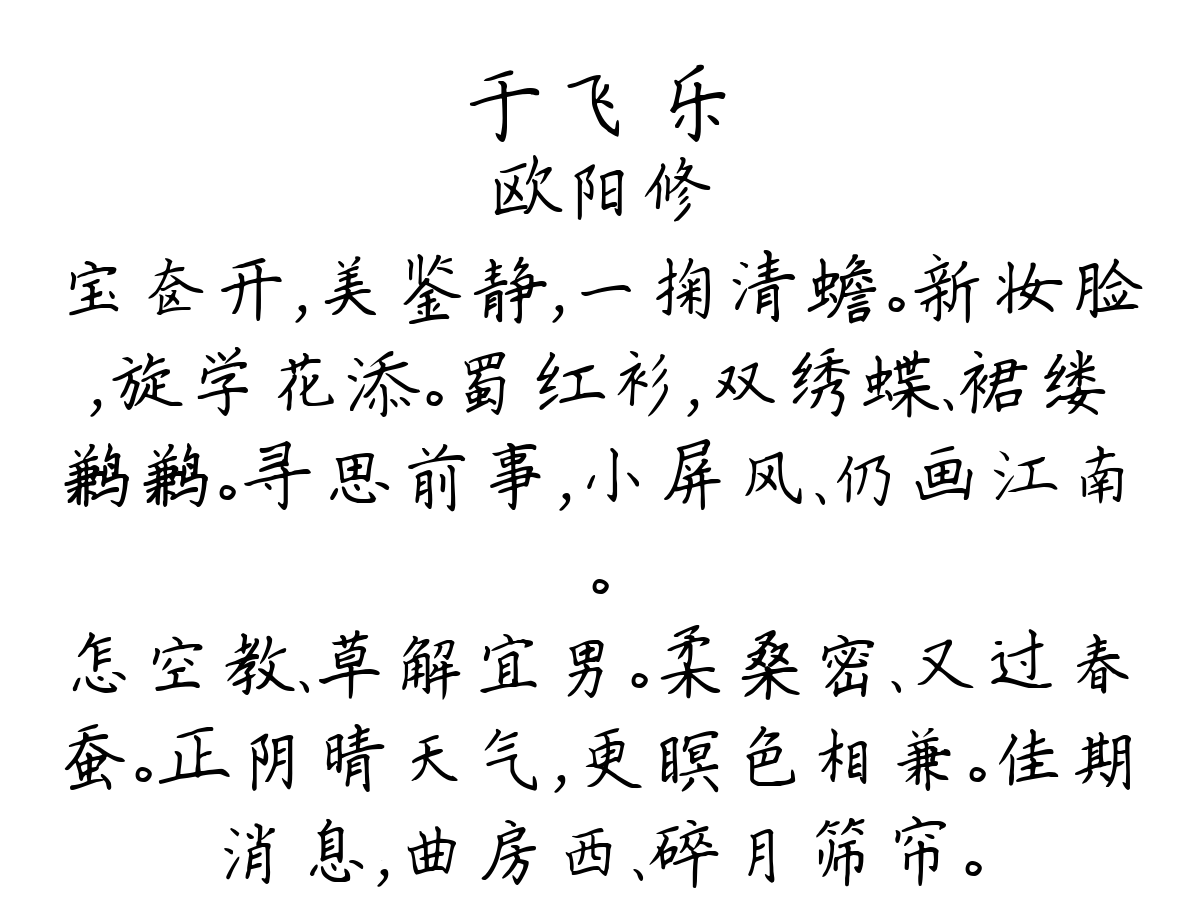 于飞乐
欧阳修
宝奁开,美鉴静,一掬清蟾。新妆脸
,旋学花添。蜀红衫,双绣蝶、裙缕
鹣鹣。寻思前事,小屏风、仍画江南
。
怎空教、草解宜男。柔桑密、又过春
蚕。正阴晴天气,更瞑色相兼。佳期
消息,曲房西、碎月筛帘。